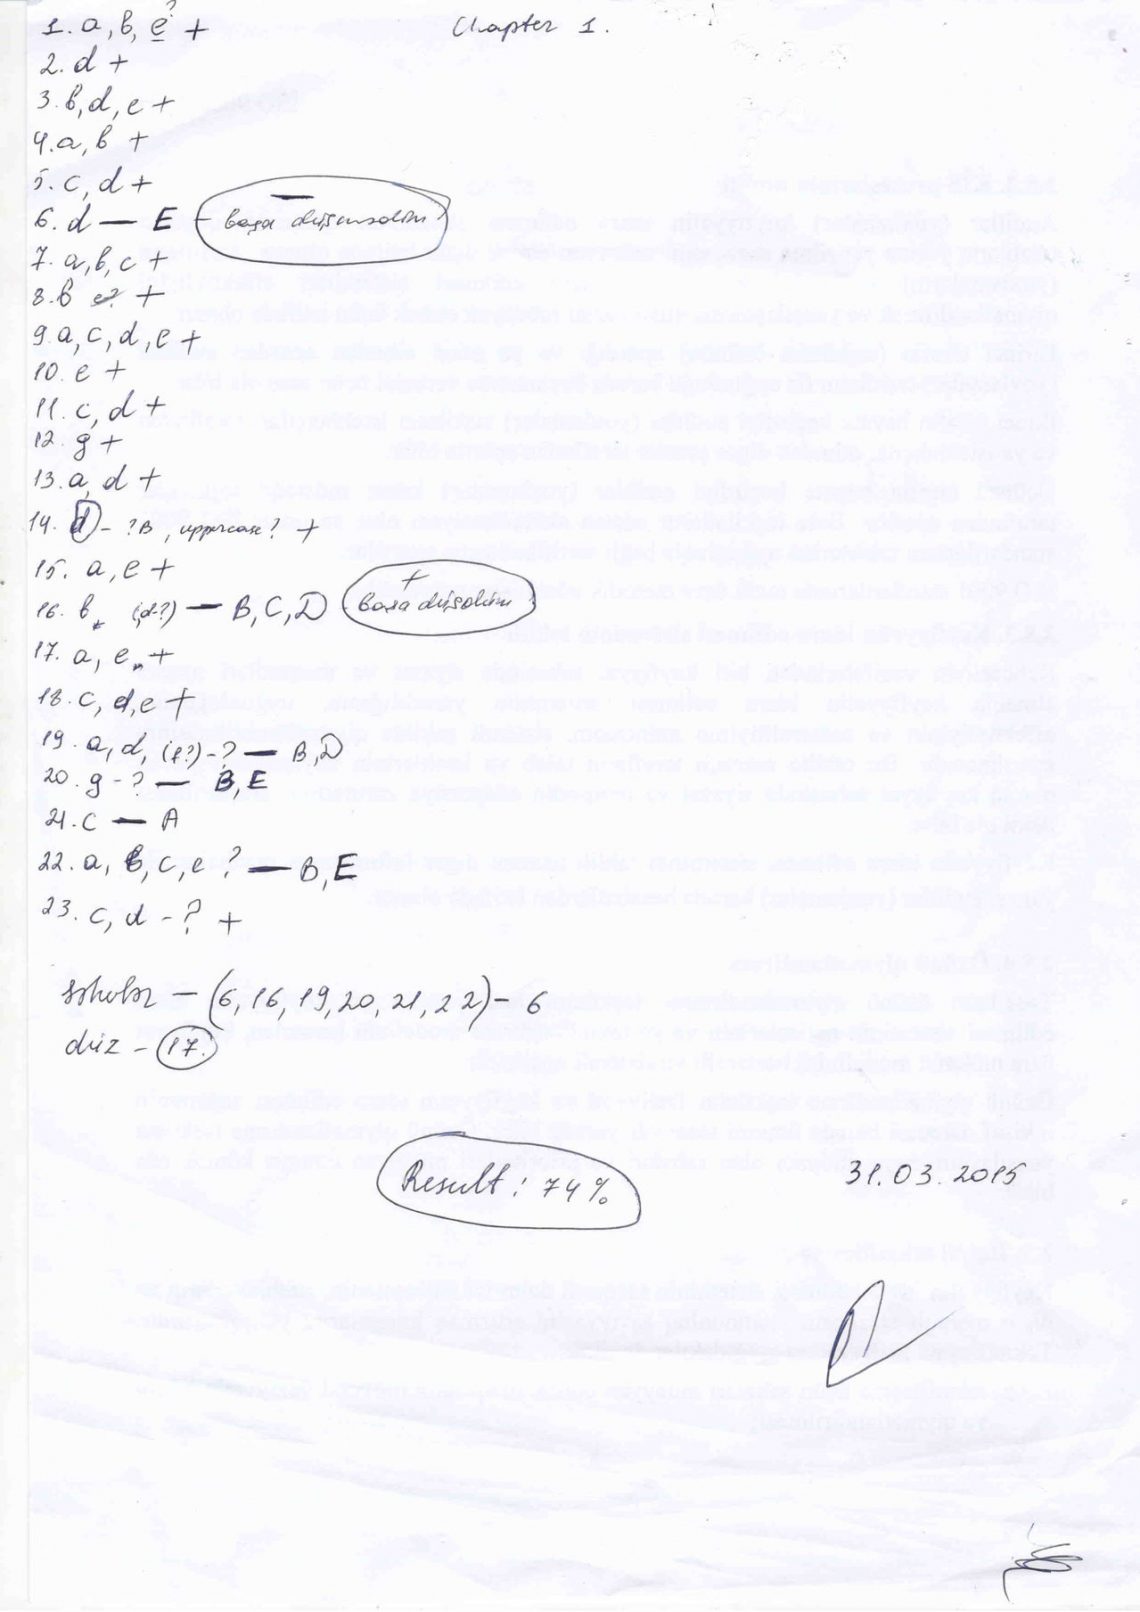 Chapter 1.
1. a, b, e ? +
2. d +
3. b, d, e +
4. a, b +
5. c, d +
6. d — E + başa düşmədim?
7. a, b, c +
8. b +
9. a, c, d, e +
10. e +
11. c, d +
12. g +
13. a, d +
14. d - ? B, uppercase? +
15. a, e +
16. b (d-?) — B, C, D + başa düşdüm
17. a, e +
18. c, d, e +
19. a, d, (f?) - ? — B, D
20. g - ? — B, E
21. c — A
22. a, b, c, e ? — B, E
23. c, d - ? +
(6, 16, 19, 20, 21, 22) - 6
düz - 17.
Result: 74%
31.03.2015